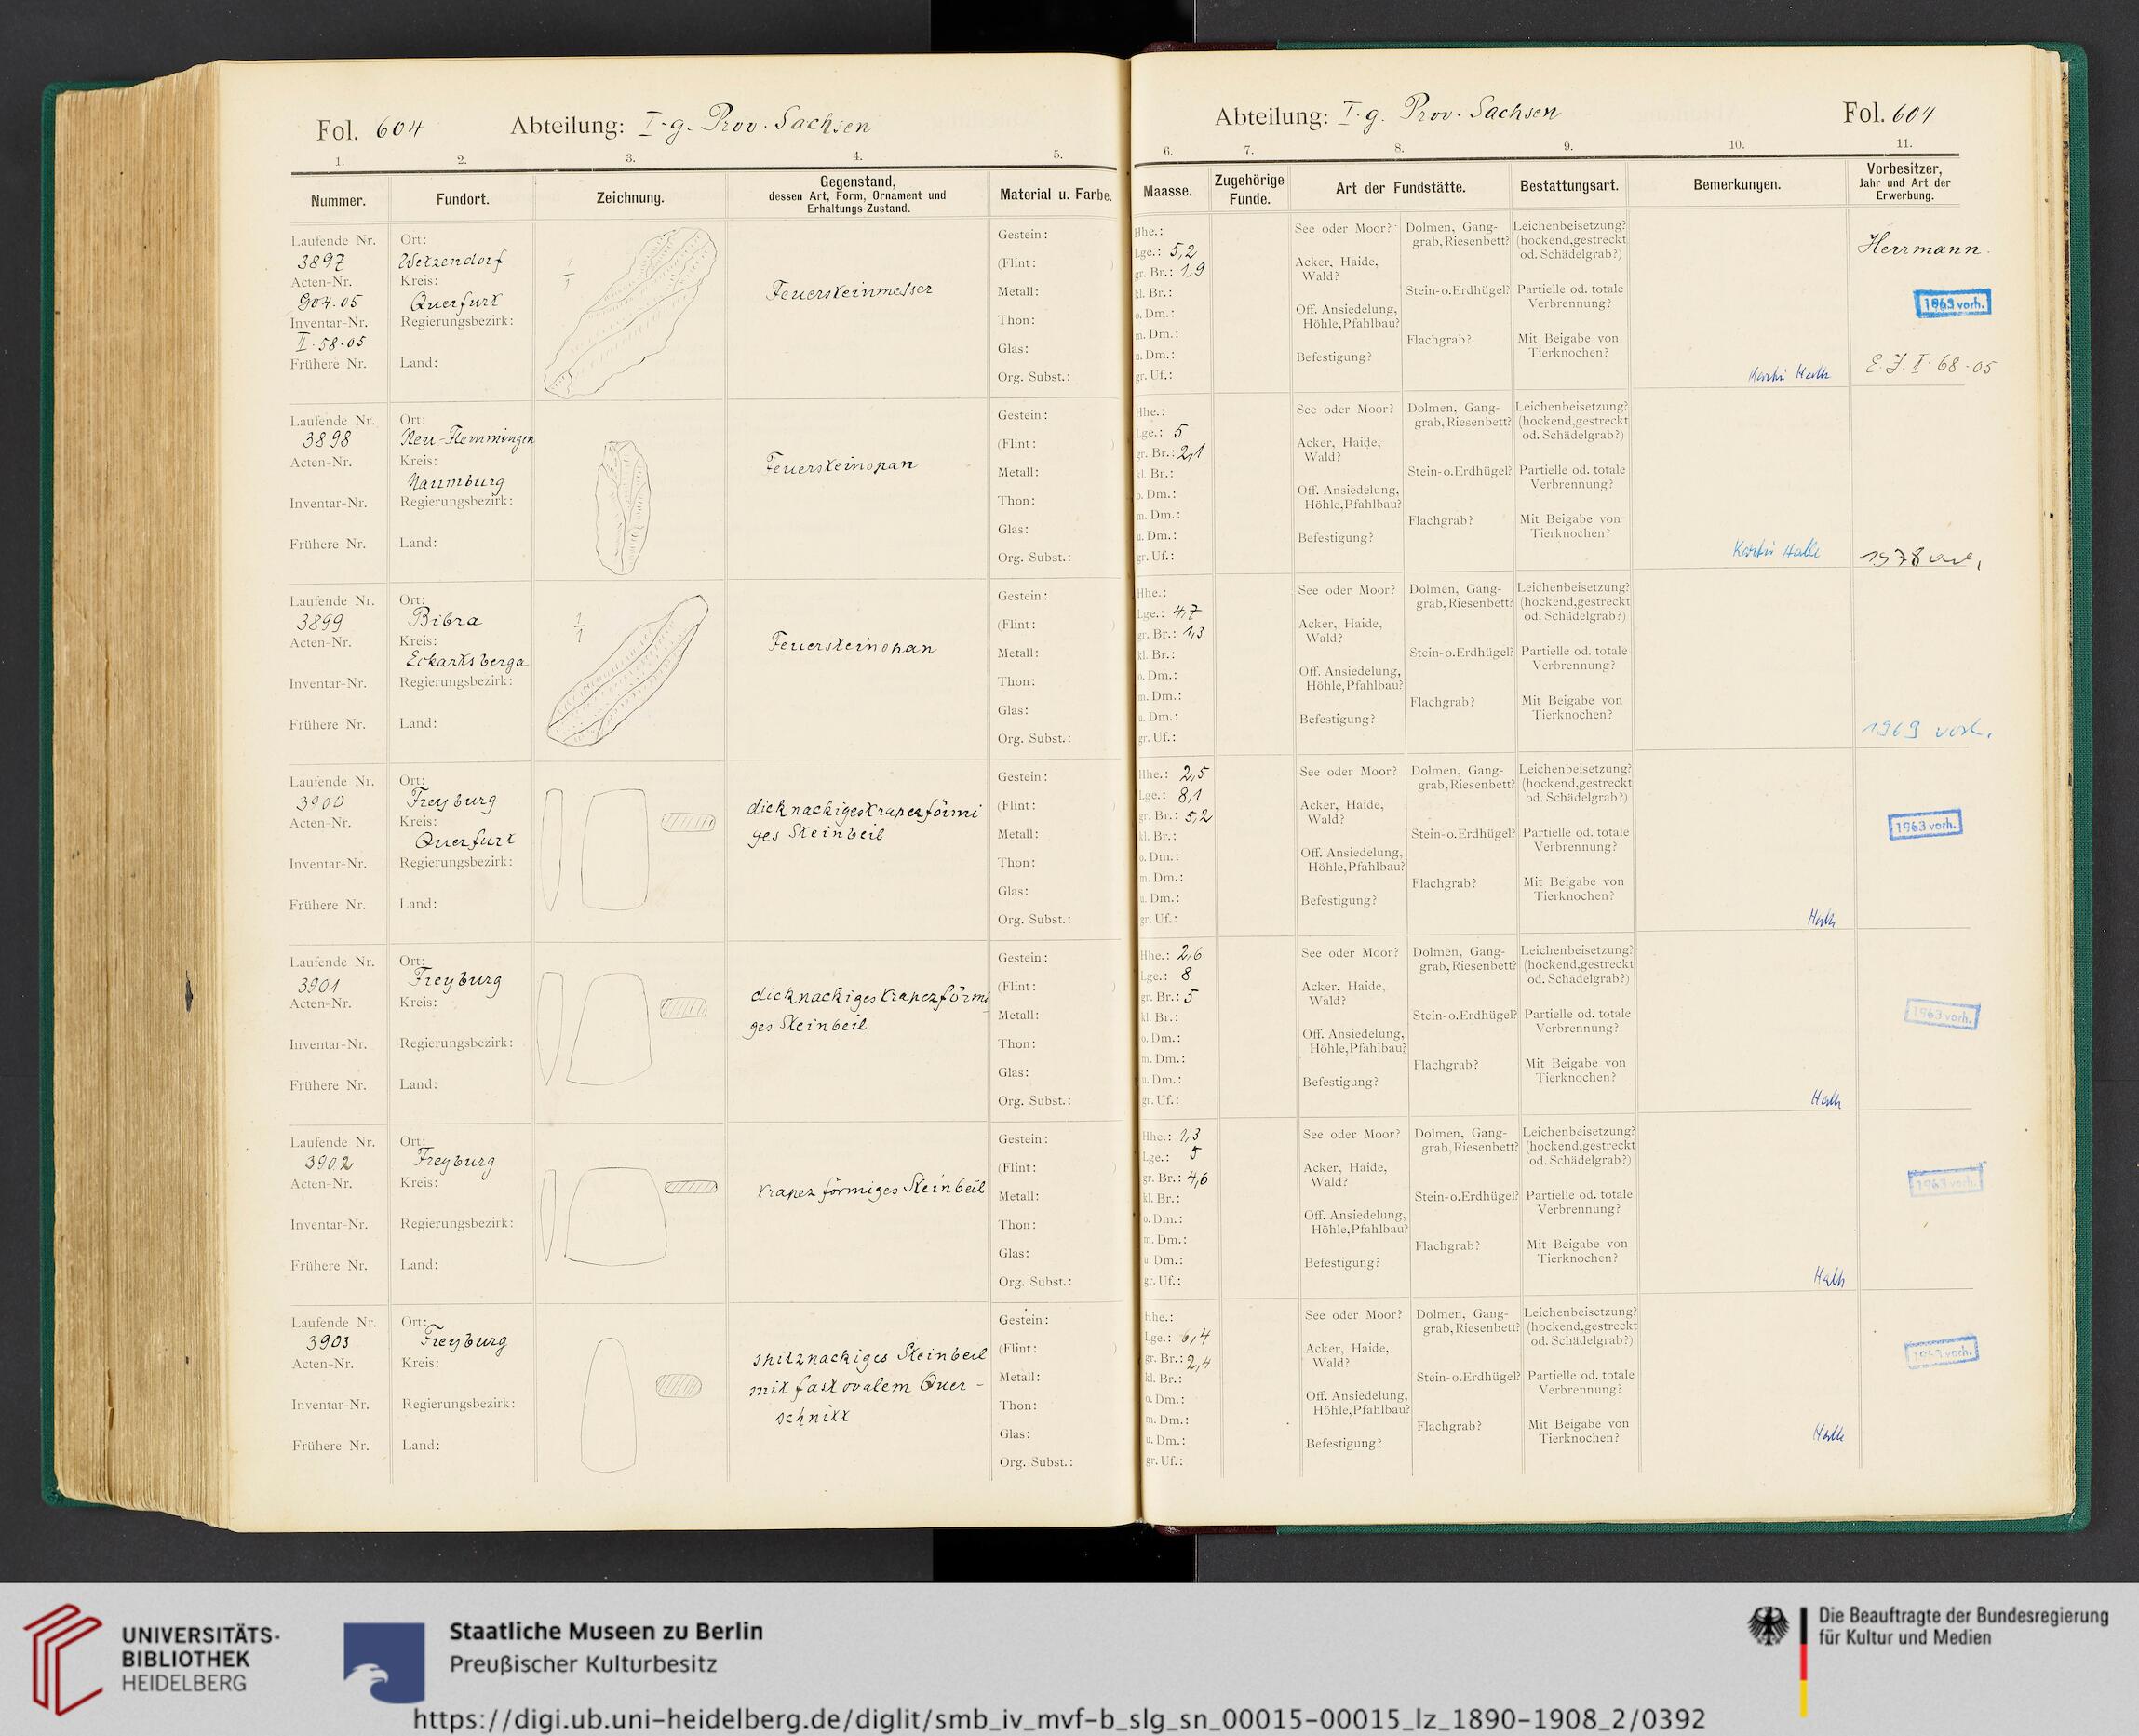 Fol. 604 Abteilung: I. g. Prov. Sachsen
1. 2. 3. 4. 5.
Nummer. Fundort. Zeichnung. Gegenstand, dessen Art, Form, Ornament und Erhaltungs-Zustand. Material u. Farbe.
Laufende Nr. Ort: Gestein:
3897 Wetzendorf (Flint: )
Acten-Nr. Kreis: 1/1 Feuersteinmesser Metall:
904.05 Querfurt
Inventar-Nr. Regierungsbezirk: Thon:
II. 58.05 Glas:
Frühere Nr. Land: Org. Subst.:
Laufende Nr. Ort: Gestein:
3898 Neu-Flemmingen (Flint: )
Acten-Nr. Kreis: Feuersteinspan Metall:
Naumburg
Inventar-Nr. Regierungsbezirk: Thon:
Glas:
Frühere Nr. Land: Org. Subst.:
Laufende Nr. Ort: Gestein:
3899 Bibra 1/1 (Flint: )
Acten-Nr. Kreis: Feuersteinspan Metall:
Eckartsberga
Inventar-Nr. Regierungsbezirk: Thon:
Glas:
Frühere Nr. Land: Org. Subst.:
Laufende Nr. Ort: Gestein:
3900 Freyburg dicknackiges trapezförmi (Flint: )
Acten-Nr. Kreis: ges Steinbeil Metall:
Querfurt
Inventar-Nr. Regierungsbezirk: Thon:
Glas:
Frühere Nr. Land: Org. Subst.:
Laufende Nr. Ort: Gestein:
3901 Freyburg dicknackiges trapezförmi (Flint: )
Acten-Nr. Kreis: ges Steinbeil Metall:
Inventar-Nr. Regierungsbezirk: Thon:
Glas:
Frühere Nr. Land: Org. Subst.:
Laufende Nr. Ort: Gestein:
3902 Freyburg (Flint: )
Acten-Nr. Kreis: trapezförmiges Steinbeil Metall:
Inventar-Nr. Regierungsbezirk: Thon:
Glas:
Frühere Nr. Land: Org. Subst.:
Laufende Nr. Ort: Gestein:
3903 Freyburg spitznackiges Steinbeil (Flint: )
Acten-Nr. Kreis: mit fast ovalem Quer- Metall:
Inventar-Nr. Regierungsbezirk: schnitt Thon:
Glas:
Frühere Nr. Land: Org. Subst.:
Abteilung: I. g. Prov. Sachsen Fol. 604
6. 7. 8. 9. 10. 11.
Maasse. Zugehörige Funde. Art der Fundstätte. Bestattungsart. Bemerkungen. Vorbesitzer, Jahr und Art der Erwerbung.
Hhe.: See oder Moor? Dolmen, Gang- Leichenbeisetzung?
Lge.: 5,2 grab, Riesenbett? (hockend, gestreckt Herrmann.
gr. Br.: 1,9 Acker, Haide, od. Schädelgrab?)
Wald?
kl. Br.: Stein- o. Erdhügel? Partielle od. totale
o. Dm.: Off. Ansiedelung, Verbrennung? 1963 vorh.
m. Dm.: Höhle, Pfahlbau? Flachgrab? Mit Beigabe von
u. Dm.: Befestigung? Tierknochen?
gr. Uf.: Halle E. J. I. 68.05
Hhe.: See oder Moor? Dolmen, Gang- Leichenbeisetzung?
Lge.: 5 grab, Riesenbett? (hockend, gestreckt
gr. Br.: 2,1 Acker, Haide, od. Schädelgrab?)
Wald?
kl. Br.: Stein- o. Erdhügel? Partielle od. totale
o. Dm.: Off. Ansiedelung, Verbrennung?
m. Dm.: Höhle, Pfahlbau? Flachgrab? Mit Beigabe von
u. Dm.: Befestigung? Tierknochen?
gr. Uf.: Halle 1978
Hhe.: See oder Moor? Dolmen, Gang- Leichenbeisetzung?
Lge.: 4,7 grab, Riesenbett? (hockend, gestreckt
gr. Br.: 1,3 Acker, Haide, od. Schädelgrab?)
Wald?
kl. Br.: Stein- o. Erdhügel? Partielle od. totale
o. Dm.: Off. Ansiedelung, Verbrennung?
m. Dm.: Höhle, Pfahlbau? Flachgrab? Mit Beigabe von
u. Dm.: Befestigung? Tierknochen?
gr. Uf.: 1969 vorh.
Hhe.: 2,5 See oder Moor? Dolmen, Gang- Leichenbeisetzung?
Lge.: 8,1 grab, Riesenbett? (hockend, gestreckt
gr. Br.: 5,2 Acker, Haide, od. Schädelgrab?)
Wald?
kl. Br.: Stein- o. Erdhügel? Partielle od. totale 1963 vorh.
o. Dm.: Off. Ansiedelung, Verbrennung?
m. Dm.: Höhle, Pfahlbau? Flachgrab? Mit Beigabe von
u. Dm.: Befestigung? Tierknochen?
gr. Uf.: Halle
Hhe.: 2,6 See oder Moor? Dolmen, Gang- Leichenbeisetzung?
Lge.: 8 grab, Riesenbett? (hockend, gestreckt
gr. Br.: 5 Acker, Haide, od. Schädelgrab?)
Wald?
kl. Br.: Stein- o. Erdhügel? Partielle od. totale 1963 vorh.
o. Dm.: Off. Ansiedelung, Verbrennung?
m. Dm.: Höhle, Pfahlbau? Flachgrab? Mit Beigabe von
u. Dm.: Befestigung? Tierknochen?
gr. Uf.: Halle
Hhe.: 1,3 See oder Moor? Dolmen, Gang- Leichenbeisetzung?
Lge.: 5 grab, Riesenbett? (hockend, gestreckt
gr. Br.: 4,6 Acker, Haide, od. Schädelgrab?)
Wald? 1963 vorh.
kl. Br.: Stein- o. Erdhügel? Partielle od. totale
o. Dm.: Off. Ansiedelung, Verbrennung?
m. Dm.: Höhle, Pfahlbau? Flachgrab? Mit Beigabe von
u. Dm.: Befestigung? Tierknochen?
gr. Uf.: Halle
Hhe.: See oder Moor? Dolmen, Gang- Leichenbeisetzung?
Lge.: 6,4 grab, Riesenbett? (hockend, gestreckt
gr. Br.: 2,4 Acker, Haide, od. Schädelgrab?) 1963 vorh.
Wald?
kl. Br.: Stein- o. Erdhügel? Partielle od. totale
o. Dm.: Off. Ansiedelung, Verbrennung?
m. Dm.: Höhle, Pfahlbau? Flachgrab? Mit Beigabe von
u. Dm.: Befestigung? Tierknochen? Halle
gr. Uf.:
UNIVERSITÄTS-
BIBLIOTHEK
HEIDELBERG
Staatliche Museen zu Berlin
Preußischer Kulturbesitz
Die Beauftragte der Bundesregierung
für Kultur und Medien
https://digi.ub.uni-heidelberg.de/diglit/smb_iv_mvf-b_slg_sn_00015-00015_lz_1890-1908_2/0392